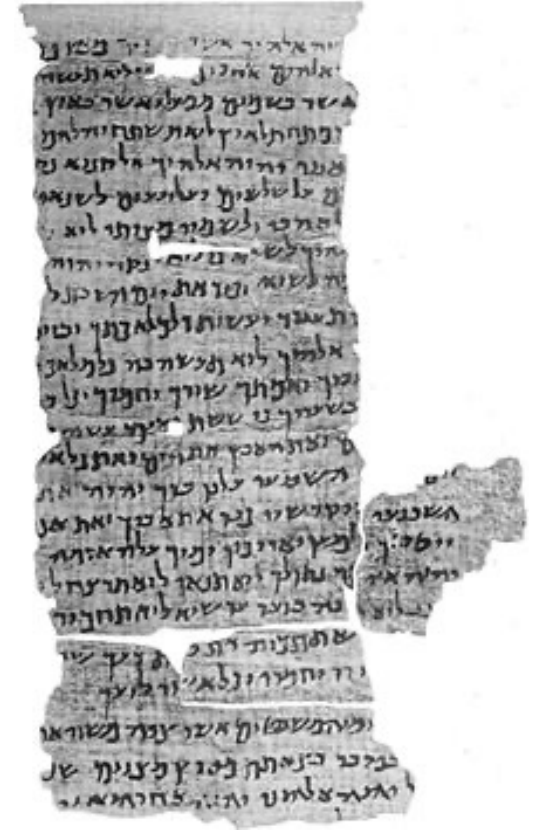 יהוה אלהיך אשר
אלהים אחרים לוא תעשה
אשר בשמים ממעל ואשר בארץ
מתחת לארץ לוא תשתחוה להם
אנכי יהוה אלהיך אל קנוא
על שלשים ועל רבעים לשנאי
לאהבי ולשמרי מצותי לוא
לשוא כי לוא ינקה יהוה
לשוא זכור את יום השבת
תעבוד ועשית כל מלאכתך וביום
אלהיך לוא תעשה בה כל מלאכה
עבדך ואמתך שורך וחמרך וכל
בשעריך כי ששת ימים עשה
ואת הארץ את הים ואת כל
השביעי על כן ברך יהוה את
השביעי ויקדשיו כבד את אביך ואת
ייטב לך ולמען יאריכון ימיך על האדמה
יהוה אלהיך נתן לך לוא תנאף לוא תרצח
לוא ברעך עד שוא לוא תחמוד
את בית רעך
וחמרו וכל אשר לרעך
והמשפטים אשר צוה משה את
במדבר בצאתם מארץ מצרים
יהוה אלהינו יהוה אחד הוא